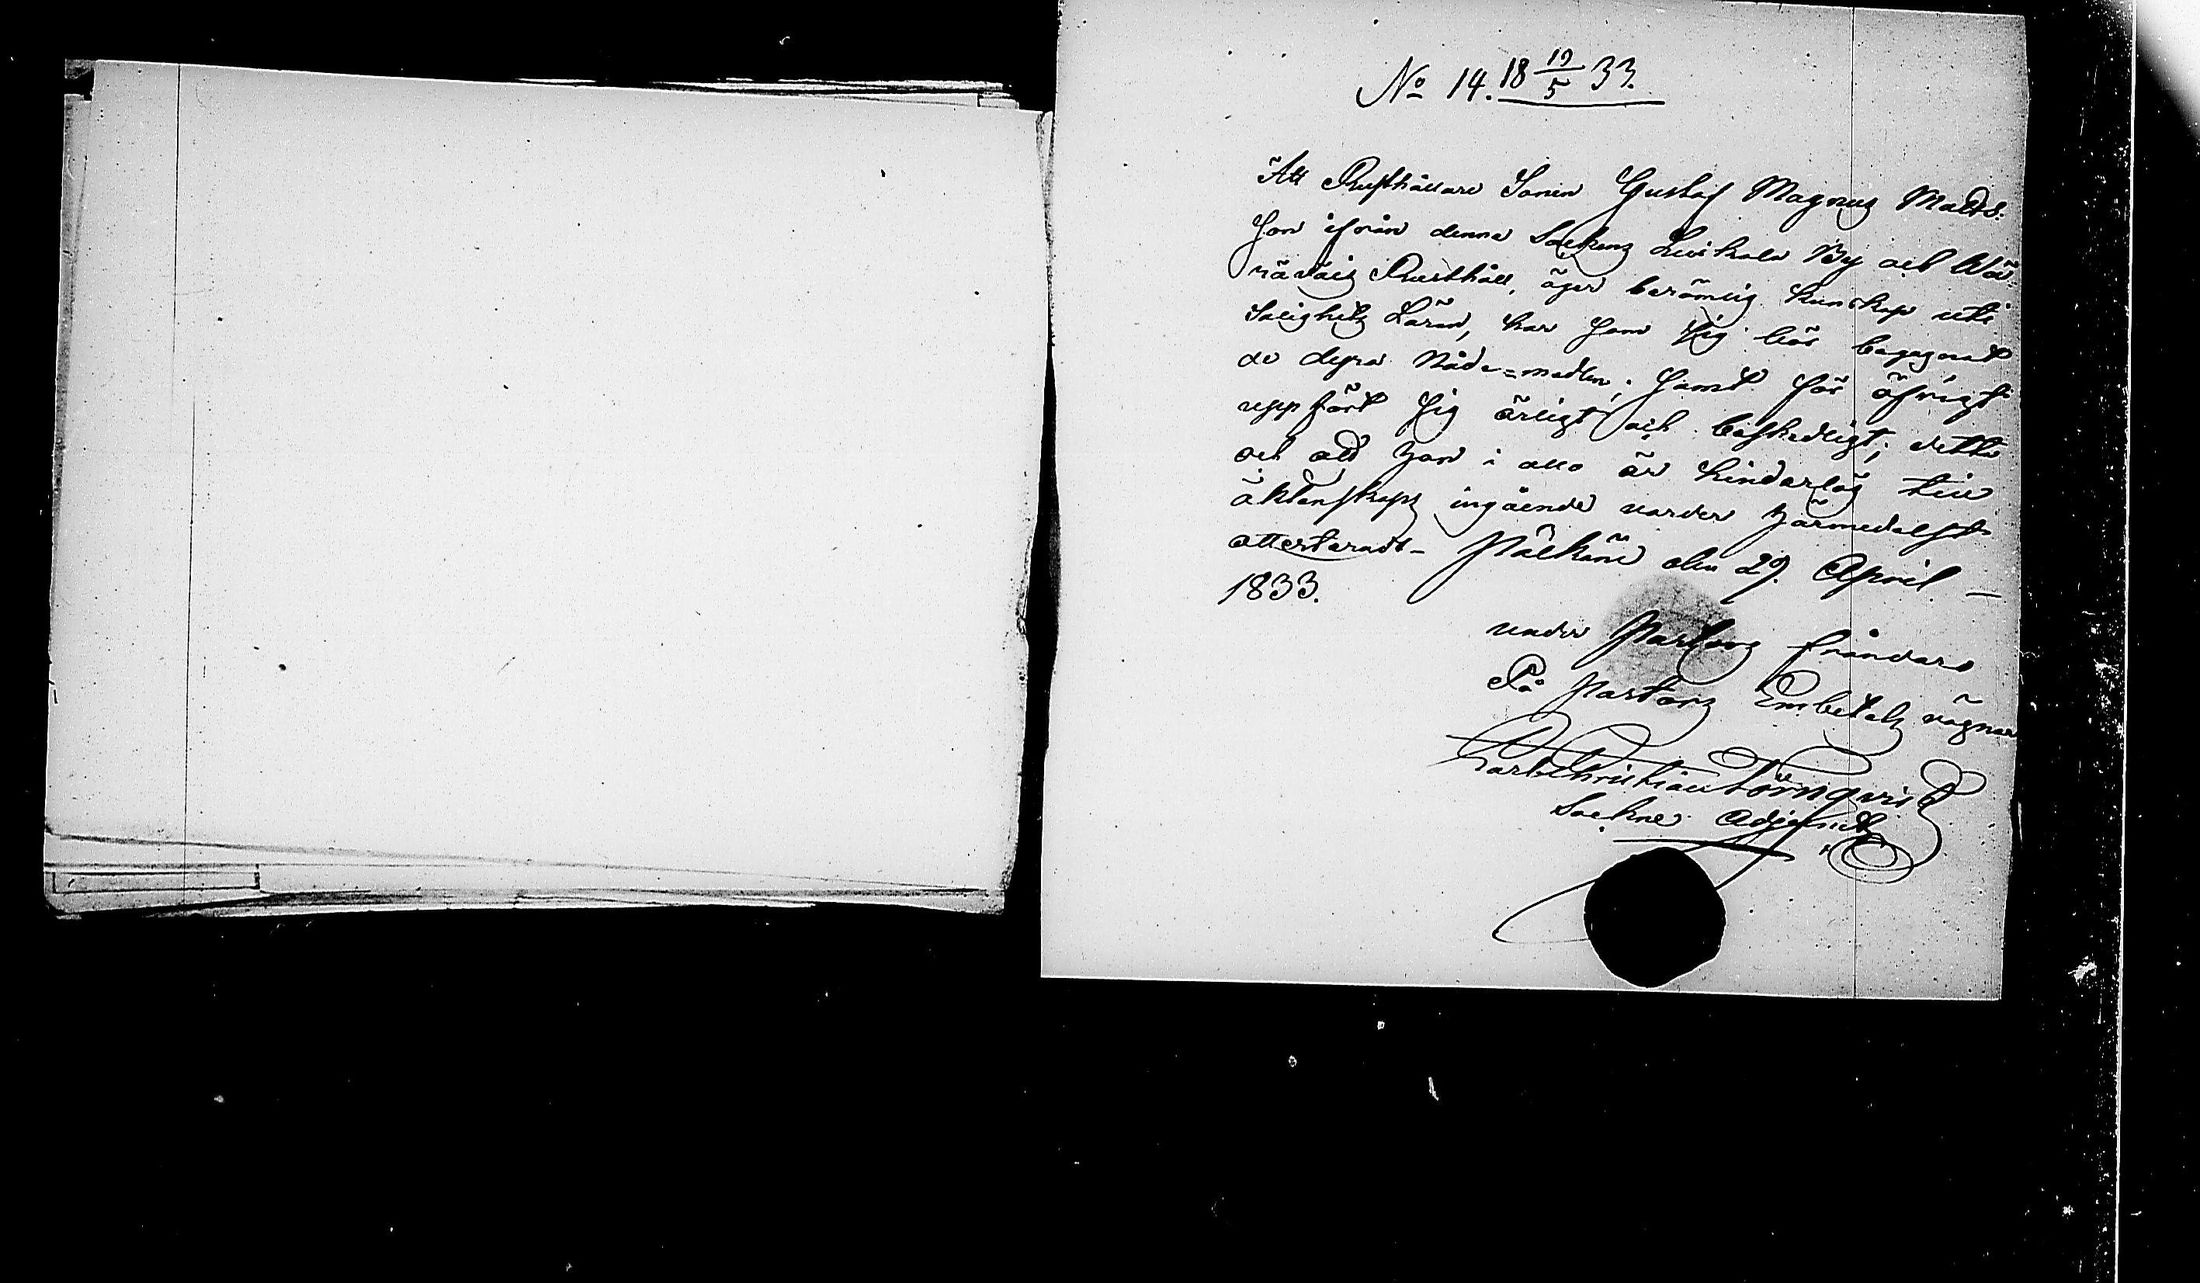 No 14. 18 19/5 33.
Att Rusthållare Sonen Gustaf Magnus Matts-
son ifrån denna Sockens Luikala By och Wä-
räväis Rusthåll, äger berömlig kunskap uti
Salighets Läran, har som sig bör begagnat
de dyra Nåde=medlen, samt för öfrigt
uppfört sig ärligt och beskedligt; detta
och att han i allo är hinderlös till
äktenskaps ingående varder härmedelst
attesteradt – Pälkäne den 29. April –
1833.
under Pastors frånvaro
På Pastors Embetets vägnar
Carl Christian Törnqvist
Sockne Adjunct